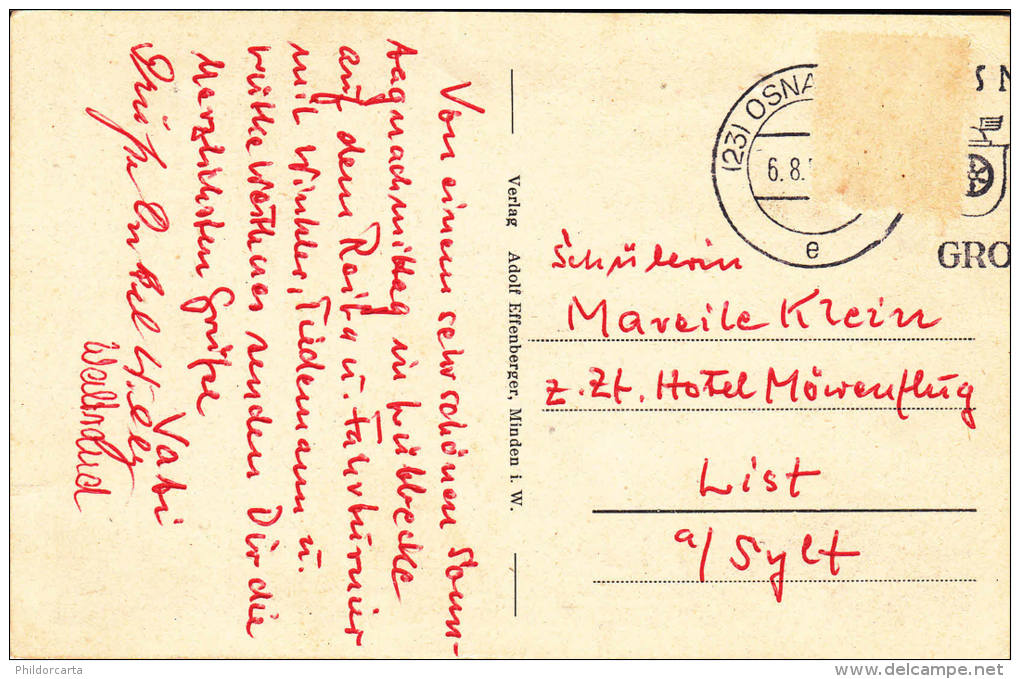 Von einem sehr schönen Sonn-
tagnachmittag in Lübbecke
auf dem Reit- u. Fahrturnier
mit Winkler, Tiedemann u.
senden Dir die
herzlichsten Grüße
Vati
Grüße Onkel Willy
Waltraud
Verlag Adolf Effenberger, Minden i. W.
(23) OSNA
6.8.
e
S N
GRO
Schülerin
Mareile Klein
z. Zt. Hotel Möwenflug
List
a/ Sylt
Phildorcarta
www.delcampe.net